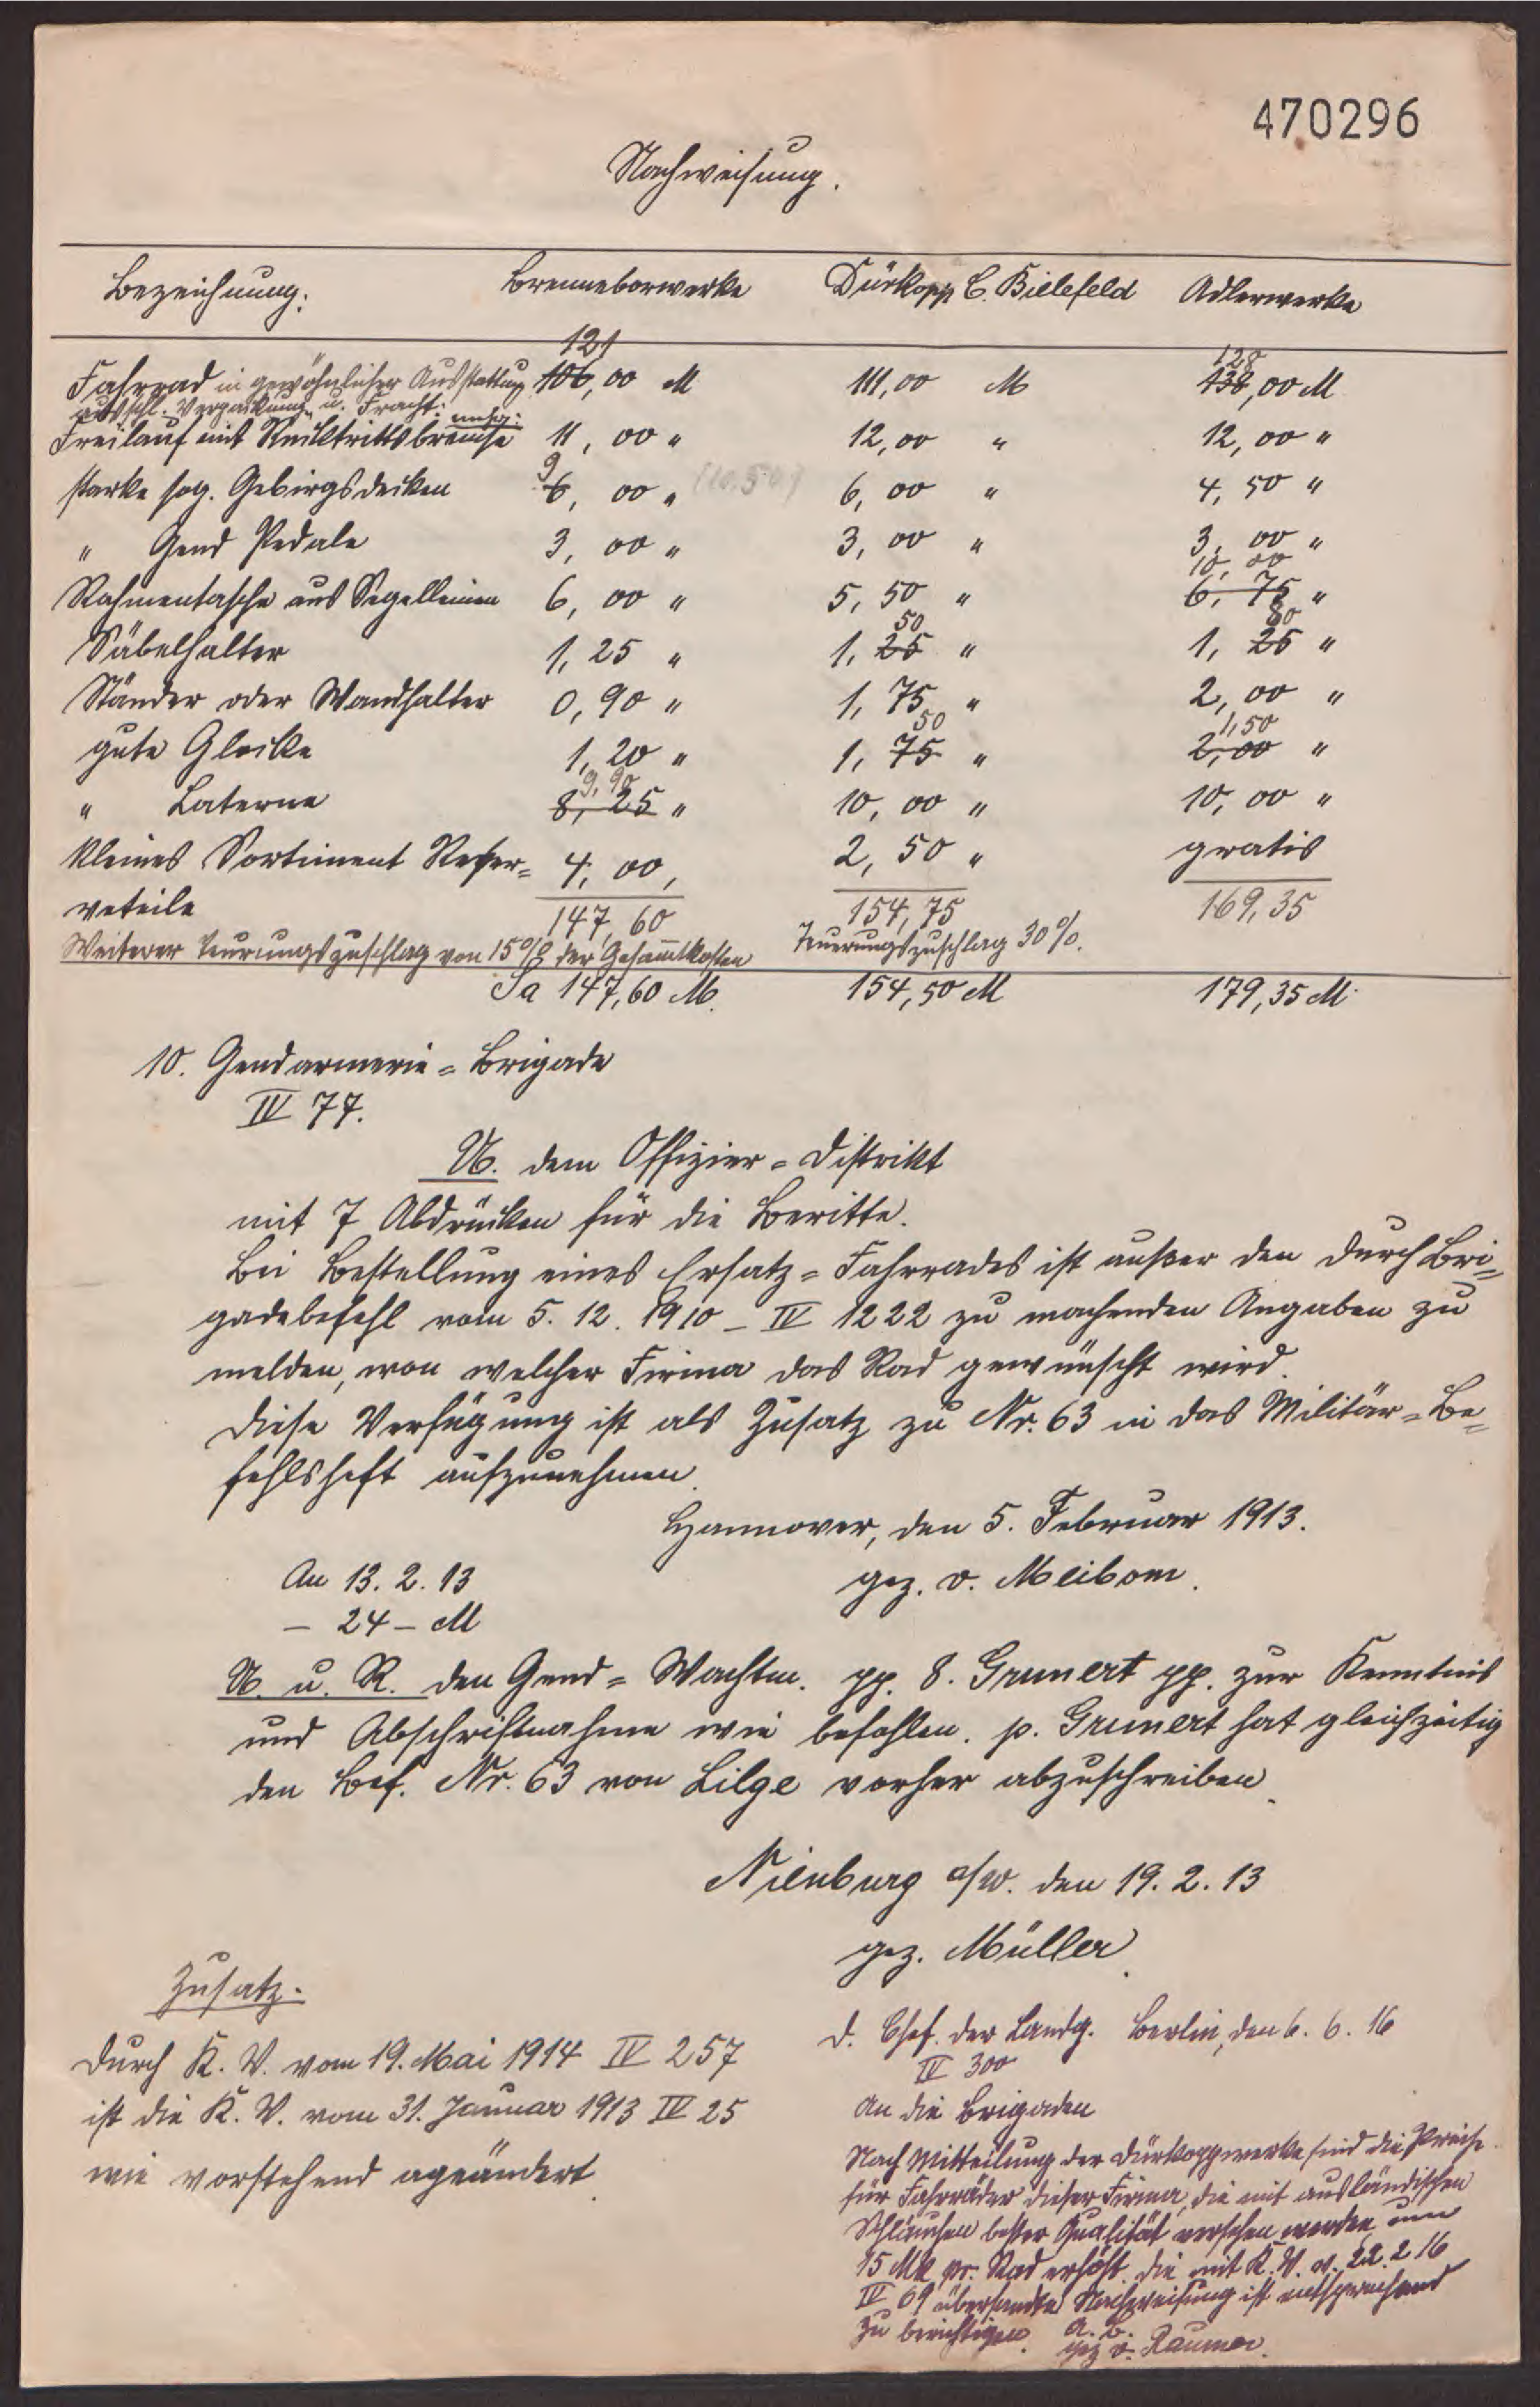 470296
Nachweisung.
Bezeichnung: Brenneborwerke Dürkopp C. Bielefeld Adlerwerke
121 128
Fahrrad in gewöhnlicher Ausstattung 106,00 M 111,00 M 138,00 M
ausschl. Verpackung u. Fracht.
Freilauf mit Rücktrittsbremse 11,00 " 12,00 " 12,00 "
9
starke sog. Gebirgsdecken 6,00 " (10.50) 6,00 " 4,50 "
" Gend Pedale 3,00 " 3,00 " 3,00 "
10,00
Rahmentasche aus Segelleinen 6,00 " 5,50 " 6,75 "
50 80
Säbelhalter 1,25 " 1,25 " 1,25 "
Ständer oder Wandhalter 0,90 " 1,75 " 2,00 "
50 1,50
gute Glocke 1,20 " 1,75 " 2,00 "
9,90
" Laterne 8,25 " 10,00 " 10,00 "
kleines Sortiment Reser= 4,00, 2,50 " gratis
veteile 147,60 154,75 169,35
Weiterer Teurungszuschlag von 15% der Gesamtkosten Teuerungszuschlag 30%.
Sa 147,60 M. 154,50 M 179,35 M.
10. Gendarmerie=Brigade
IV 77.
U. dem Offizier=Distrikt
mit 7 Abdrücken für die Beritte.
Bei Bestellung eines Ersatz=Fahrrades ist außer den durch Bri=
gadebefehl vom 5. 12. 1910 – IV 1222 zu machenden Angaben zu
melden, von welcher Firma das Rad gewünscht wird.
Diese Verfügung ist als Zusatz zu Nr. 63 in das Militär=Be=
fehlsheft aufzunehmen.
Hannover, den 5. Februar 1913.
An 13. 2. 13 gez. v. Meibom.
– 24 – M
U. u. R. den Gend=Wachtm. pp. 8. Grunert pp. zur Kenntnis
und Abschriftnahme wie befohlen. p. Grunert hat gleichzeitig
den Bef. Nr. 63 von Lilge vorher abzuschreiben.
Nienburg a/W. den 19. 2. 13
gez. Müller.
Zusatz.
Durch K. V. vom 19. Mai 1914 IV 257
ist die K. V. vom 31. Januar 1913 IV 25
wie vorstehend ageändert.
D. Chef. der Landg. Berlin, den 6. 6. 16
IV 300
An die Brigaden
Nach Mitteilung der Dürkoppwerke sind die Preise
für Fahrräder dieser Firma, die mit ausländischen
Schläuchen bester Qualität versehen werden um
15 Mk pr. Rad erhöht. Die mit K. V. v. 22. 2 16
IV 69 übersandte Nachweisung ist entsprechend
zu berichtigen. A. B.
gez v. Raumer.